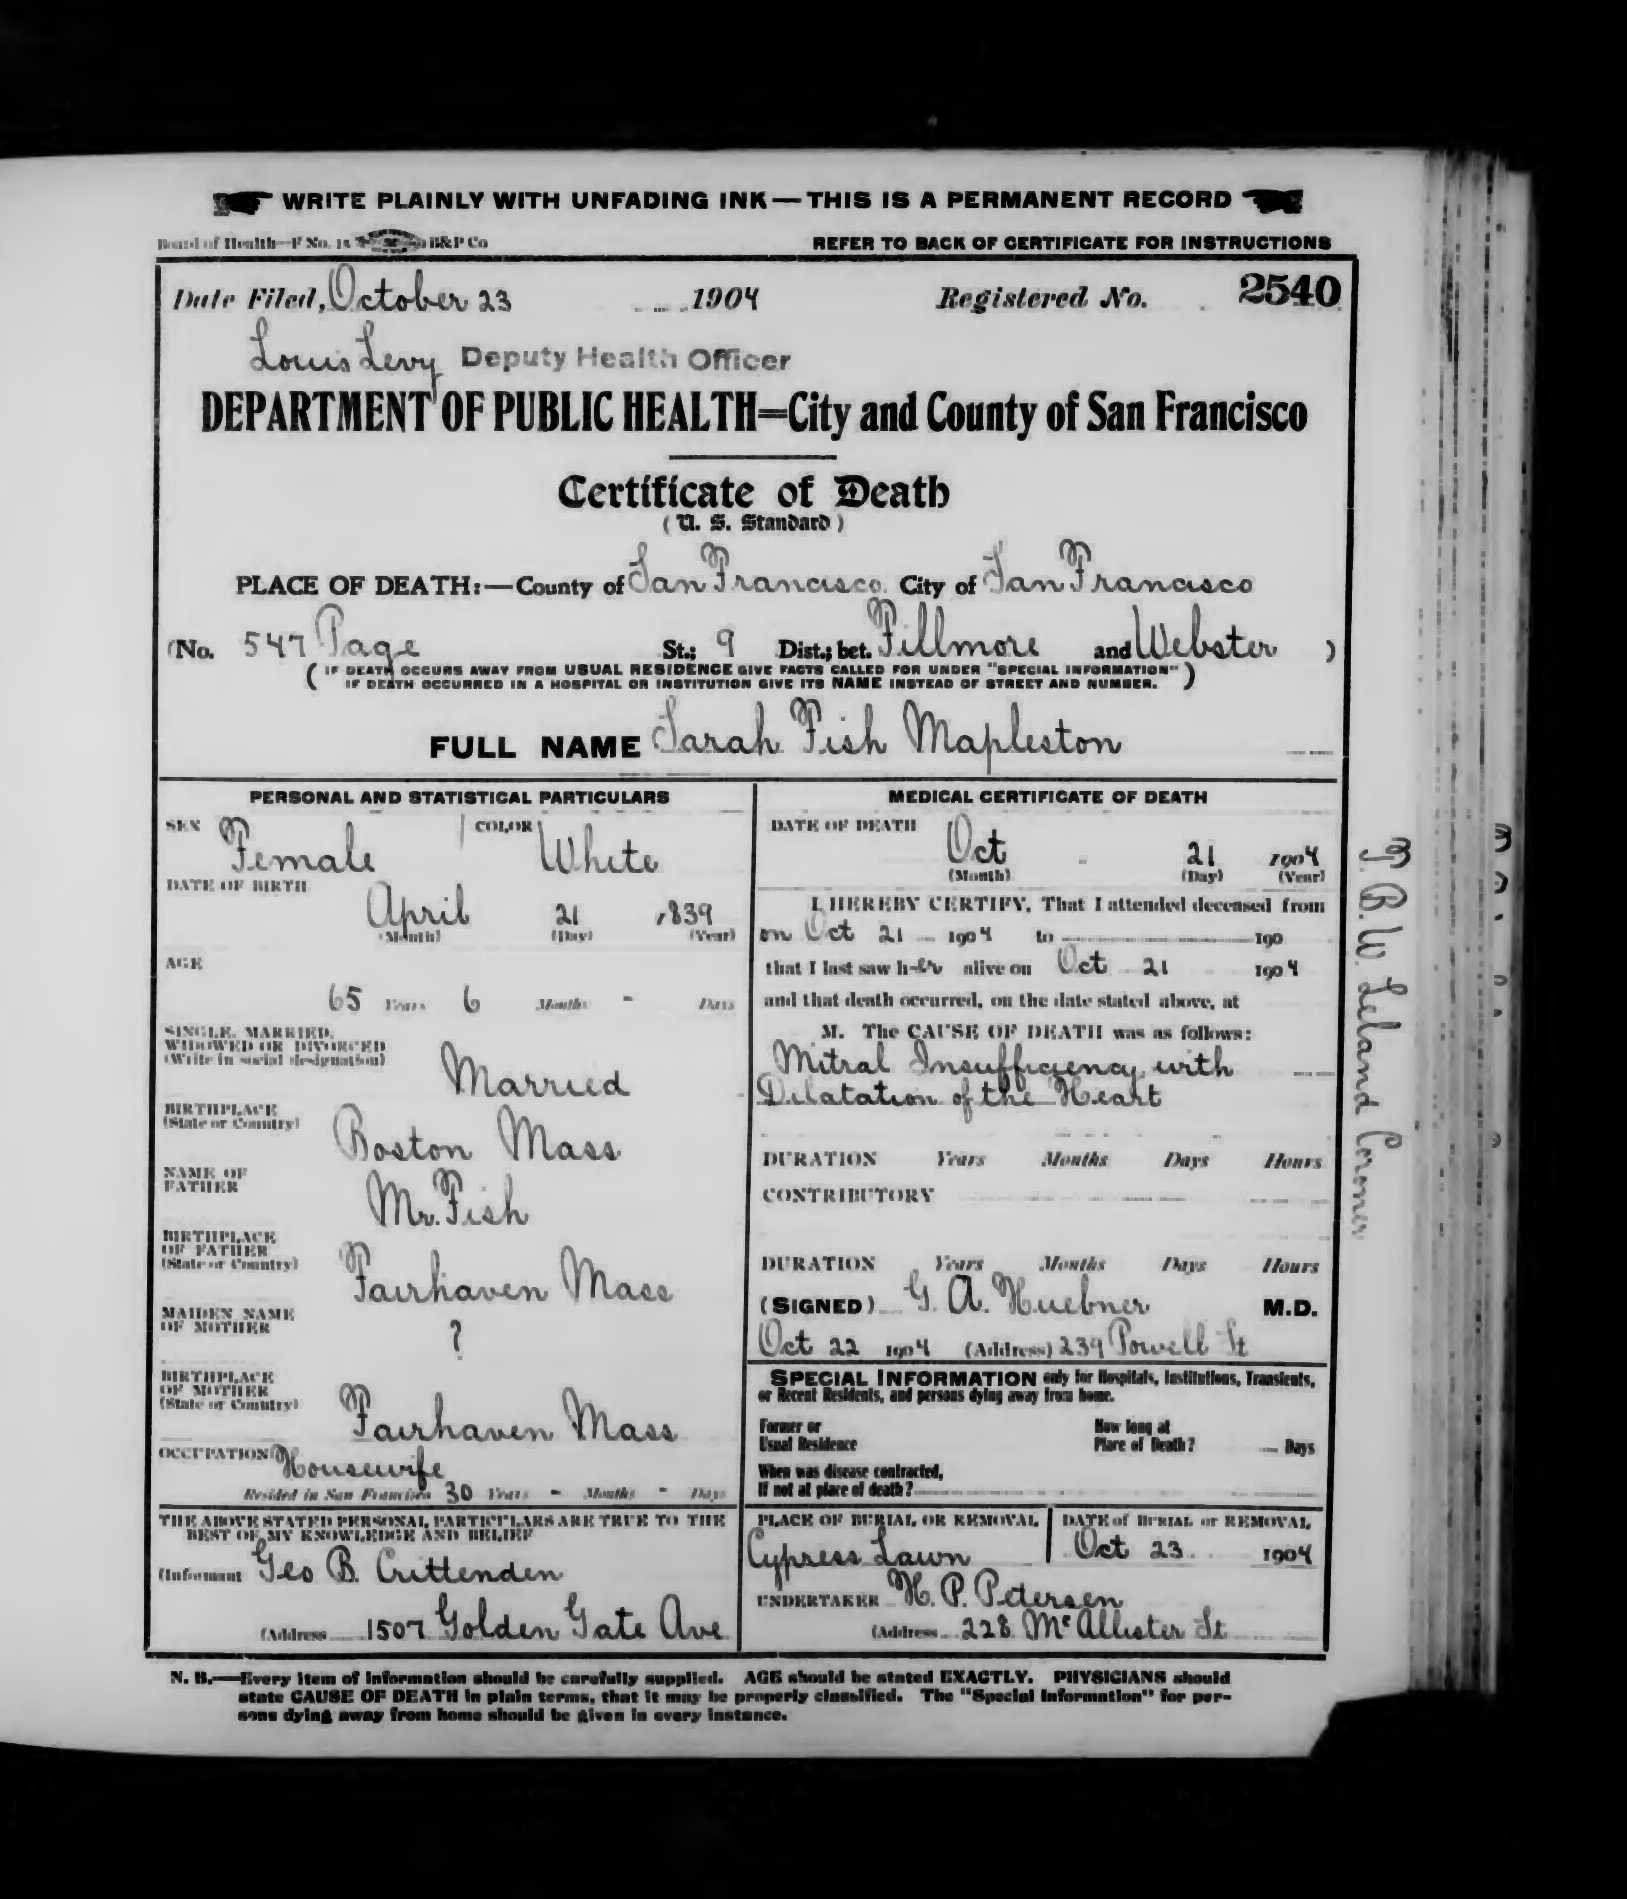 WRITE PLAINLY WITH UNFADING INK—THIS IS A PERMANENT RECORD
Board of Health—F No. 15 B&P Co REFER TO BACK OF CERTIFICATE FOR INSTRUCTIONS
Date Filed, October 23 1904 Registered No. 2540
Louis Levy Deputy Health Officer
DEPARTMENT OF PUBLIC HEALTH=City and County of San Francisco
Certificate of Death
(U. S. Standard)
PLACE OF DEATH:—County of San Francisco City of San Francisco
(No. 547 Page St.; 9 Dist.; bet. Fillmore and Webster )
( IF DEATH OCCURS AWAY FROM USUAL RESIDENCE GIVE FACTS CALLED FOR UNDER "SPECIAL INFORMATION" )
( IF DEATH OCCURRED IN A HOSPITAL OR INSTITUTION GIVE ITS NAME INSTEAD OF STREET AND NUMBER. )
FULL NAME Sarah Fish Mapleston
PERSONAL AND STATISTICAL PARTICULARS
SEX Female COLOR White
DATE OF BIRTH
April 21 1839
(Month) (Day) (Year)
AGE
65 Years 6 Months - Days
SINGLE, MARRIED,
WIDOWED OR DIVORCED
(Write in social designation)
Married
BIRTHPLACE
(State or Country)
Boston Mass
NAME OF
FATHER
Mr. Fish
BIRTHPLACE
OF FATHER
(State or Country)
Fairhaven Mass
MAIDEN NAME
OF MOTHER
?
BIRTHPLACE
OF MOTHER
(State or Country)
Fairhaven Mass
OCCUPATION Housewife
Resided in San Francisco 30 Years - Months - Days
THE ABOVE STATED PERSONAL PARTICULARS ARE TRUE TO THE
BEST OF MY KNOWLEDGE AND BELIEF
(Informant Geo B. Crittenden
(Address 1507 Golden Gate Ave
MEDICAL CERTIFICATE OF DEATH
DATE OF DEATH
Oct 21 1904
(Month) (Day) (Year)
I HEREBY CERTIFY, That I attended deceased from
on Oct 21 1904 to 190
that I last saw h-er alive on Oct 21 1904
and that death occurred, on the date stated above, at
M. The CAUSE OF DEATH was as follows:
Mitral Insufficiency with
Dilatation of the Heart
DURATION Years Months Days Hours
CONTRIBUTORY
DURATION Years Months Days Hours
(SIGNED) G. A. Huebner M.D.
Oct 22 1904 (Address) 239 Powell St
SPECIAL INFORMATION only for Hospitals, Institutions, Transients,
or Recent Residents, and persons dying away from home.
Former or
Usual Residence
How long at
Place of Death? Days
When was disease contracted,
If not at place of death?
PLACE OF BURIAL OR REMOVAL
Cypress Lawn
DATE of BURIAL or REMOVAL
Oct 23 1904
UNDERTAKER H. P. Petersen
(Address 228 McAllister St
B. W. Leland Coroner
N. B.—Every item of information should be carefully supplied. AGE should be stated EXACTLY. PHYSICIANS should
state CAUSE OF DEATH in plain terms, that it may be properly classified. The "Special Information" for per-
sons dying away from home should be given in every instance.